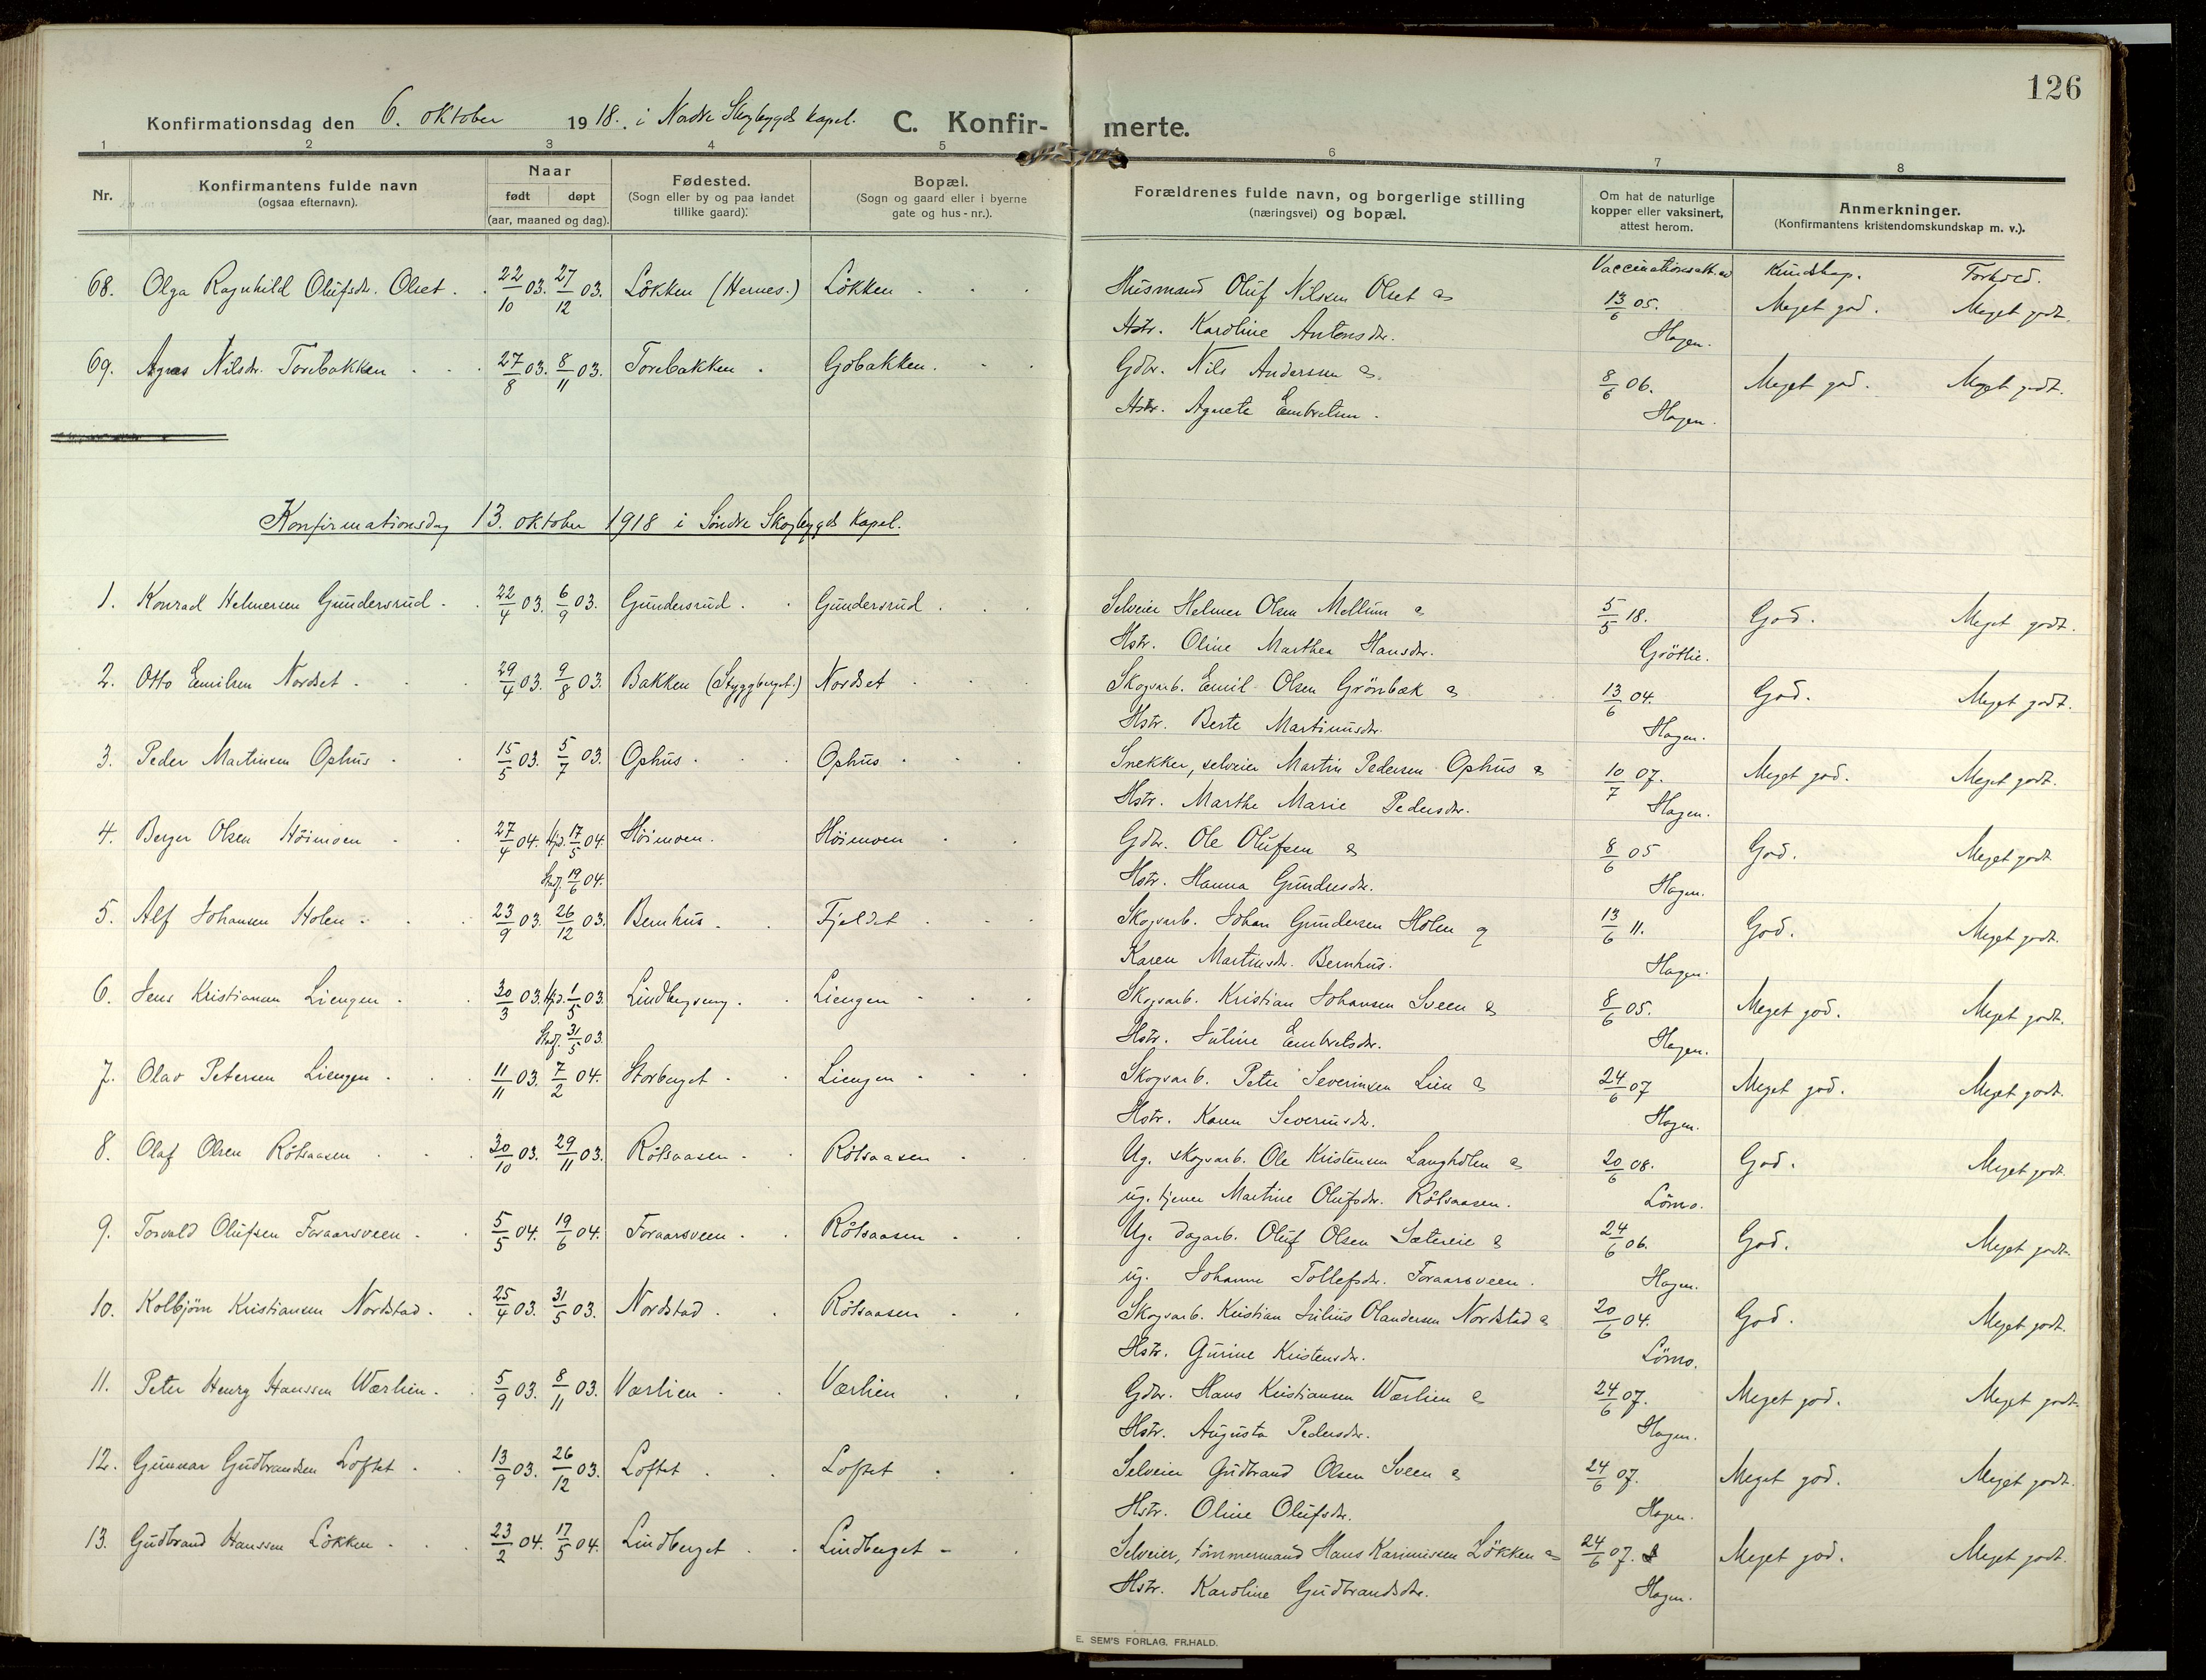 126
Konfirmationsdag den 6. oktober 1918. i Nordre Skogbygds Kapel. C. Konfir- merte.
1 2 3 4 5 6 7 8
Nr. Konfirmantens fulde navn (ogsaa efternavn). Naar født døpt (aar, maaned og dag). Fødested. (Sogn eller by og paa landet tillike gaard). Bopæl. (Sogn og gaard eller i byerne gate og hus-nr.). Forældrenes fulde navn, og borgerlige stilling (næringsvei) og bopæl. Om hat de naturlige kopper eller vaksinert, attest herom. Anmerkninger. (Konfirmantens kristendomskundskap m. v.).
Vaccinationsatt. av Kundskap. Forhold.
68. Olga Ragnhild Olufsdr. Olset. 22/10 03. 27/12 03. Løkken (Hernes.) Løkken Husmand Oluf Nilsen Olset & 13/6 05. Meget god. Meget godt.
Hstr. Karoline Antonsdr. Hagen.
69. Agnes Nilsdr. Torebakken 27/8 03. 8/11 03. Torebakken. Gobakken. Gdbr. Nils Andersen & 8/6 06. Meget god. Meget godt.
Hstr. Agnete Embretsen. Hagen.
Konfirmationsdag 13. oktober 1918 i Søndre Skogbygds Kapel.
1. Konrad Helmersen Gundersrud. 22/4 03. 6/9 03. Gundersrud. Gundersrud. Selveier Helmer Olsen Mellum & 5/5 18. God. Meget godt.
Hstr. Oline Marthea Hansdr. Grøtlie.
2. Otto Emilsen Nordset. 29/4 03. 9/8 03. Bakken (Styggberget.) Nordset Skogsarb. Emil Olsen Grønbæk & 13/6 04. God. Meget godt.
Hstr. Berte Martinusdr. Hagen.
3. Peder Martinsen Ophus 15/5 03. 5/7 03. Ophus. Ophus. Snekker, selveier Martin Pedersen Ophus & 10/7 07. Meget god. Meget godt.
Hstr. Marthe Marie Pedersdr. Hagen.
4. Berger Olsen Höimoen 27/4 04. Hjd. 17/5 04. Höimoen. Höimoen Gdbr. Ole Olufsen & 8/6 05 God. Meget godt
Stadf. 19/6 04. Hstr. Hanna Gundersdr. Hagen.
5. Alf Johansen Holen. 23/9 03. 26/12 03. Bernhus. Fjeldet Skogsarb. Johan Gundersen Holen og 13/6 11. God. Meget godt.
Karen Martinsdr. Bernhus. Hagen.
6. Jens Kristiansen Liengen. 30/3 03. Hjd. 1/5 03. Lindbergseng. Liengen Skogsarb. Kristian Johansen Sveen & 8/6 05. Meget god. Meget godt.
Stadf. 31/5 03. Hstr. Juline Embretsdr. Hagen.
7. Olav Petersen Liengen. 11/11 03. 7/2 04. Storberget. Liengen Skogsarb. Peter Severinsen Lien & 24/6 07 Meget god. Meget godt.
Hstr. Karen Severinsdr. Hagen.
8. Olaf Olsen Rötsaasen 30/10 03. 29/11 03. Rötsaasen. Rötsaasen Ug. skogsarb. Ole Kristensen Langholen & 20/6 08. God. Meget godt.
ug. tjener Martine Olufsdr. Rötsaasen. Lömo.
9. Torvald Olufsen Foraarsveen. 5/5 04. 19/6 04. Foraarsveen. Rötsaasen Ug. dagarb. Oluf Olsen Sætereie & 24/6 06. God. Meget godt.
ug. Johanne Tollefsdr. Foraarsveen. Hagen.
10. Kolbjörn Kristiansen Nordstad. 25/4 03. 31/5 03. Nordstad. Rötsaasen Skogsarb. Kristian Julius Olandersen Nordstad & 20/6 04. God. Meget godt.
Hstr. Gurine Kristensdr. Lömo.
11. Peter Henry Hanssen Wærlien. 5/9 03. 8/11 03. Værlien. Værlien Gdbr. Hans Kristiansen Wærlien & 24/6 07. Meget god. Meget godt.
Hstr. Augusta Pedersdr. Hagen.
12. Gunnar Gudbrandsen Loftet. 13/9 03. 26/12 03. Loftet. Loftet Selveier Gudbrand Olsen Sveen & 24/6 07. Meget god. Meget godt.
Hstr. Oline Olufsdr. Hagen.
13. Gudbrand Hanssen Løkken. 23/2 04. 17/5 04. Lindberget. Lindberget Selveier, tømmermand Hans Karinusen Løkken & 24/6 07. Meget god. Meget godt.
Hstr. Karoline Gudbrandsdr. Hagen.
E. SEM'S FORLAG. FR.HALD.